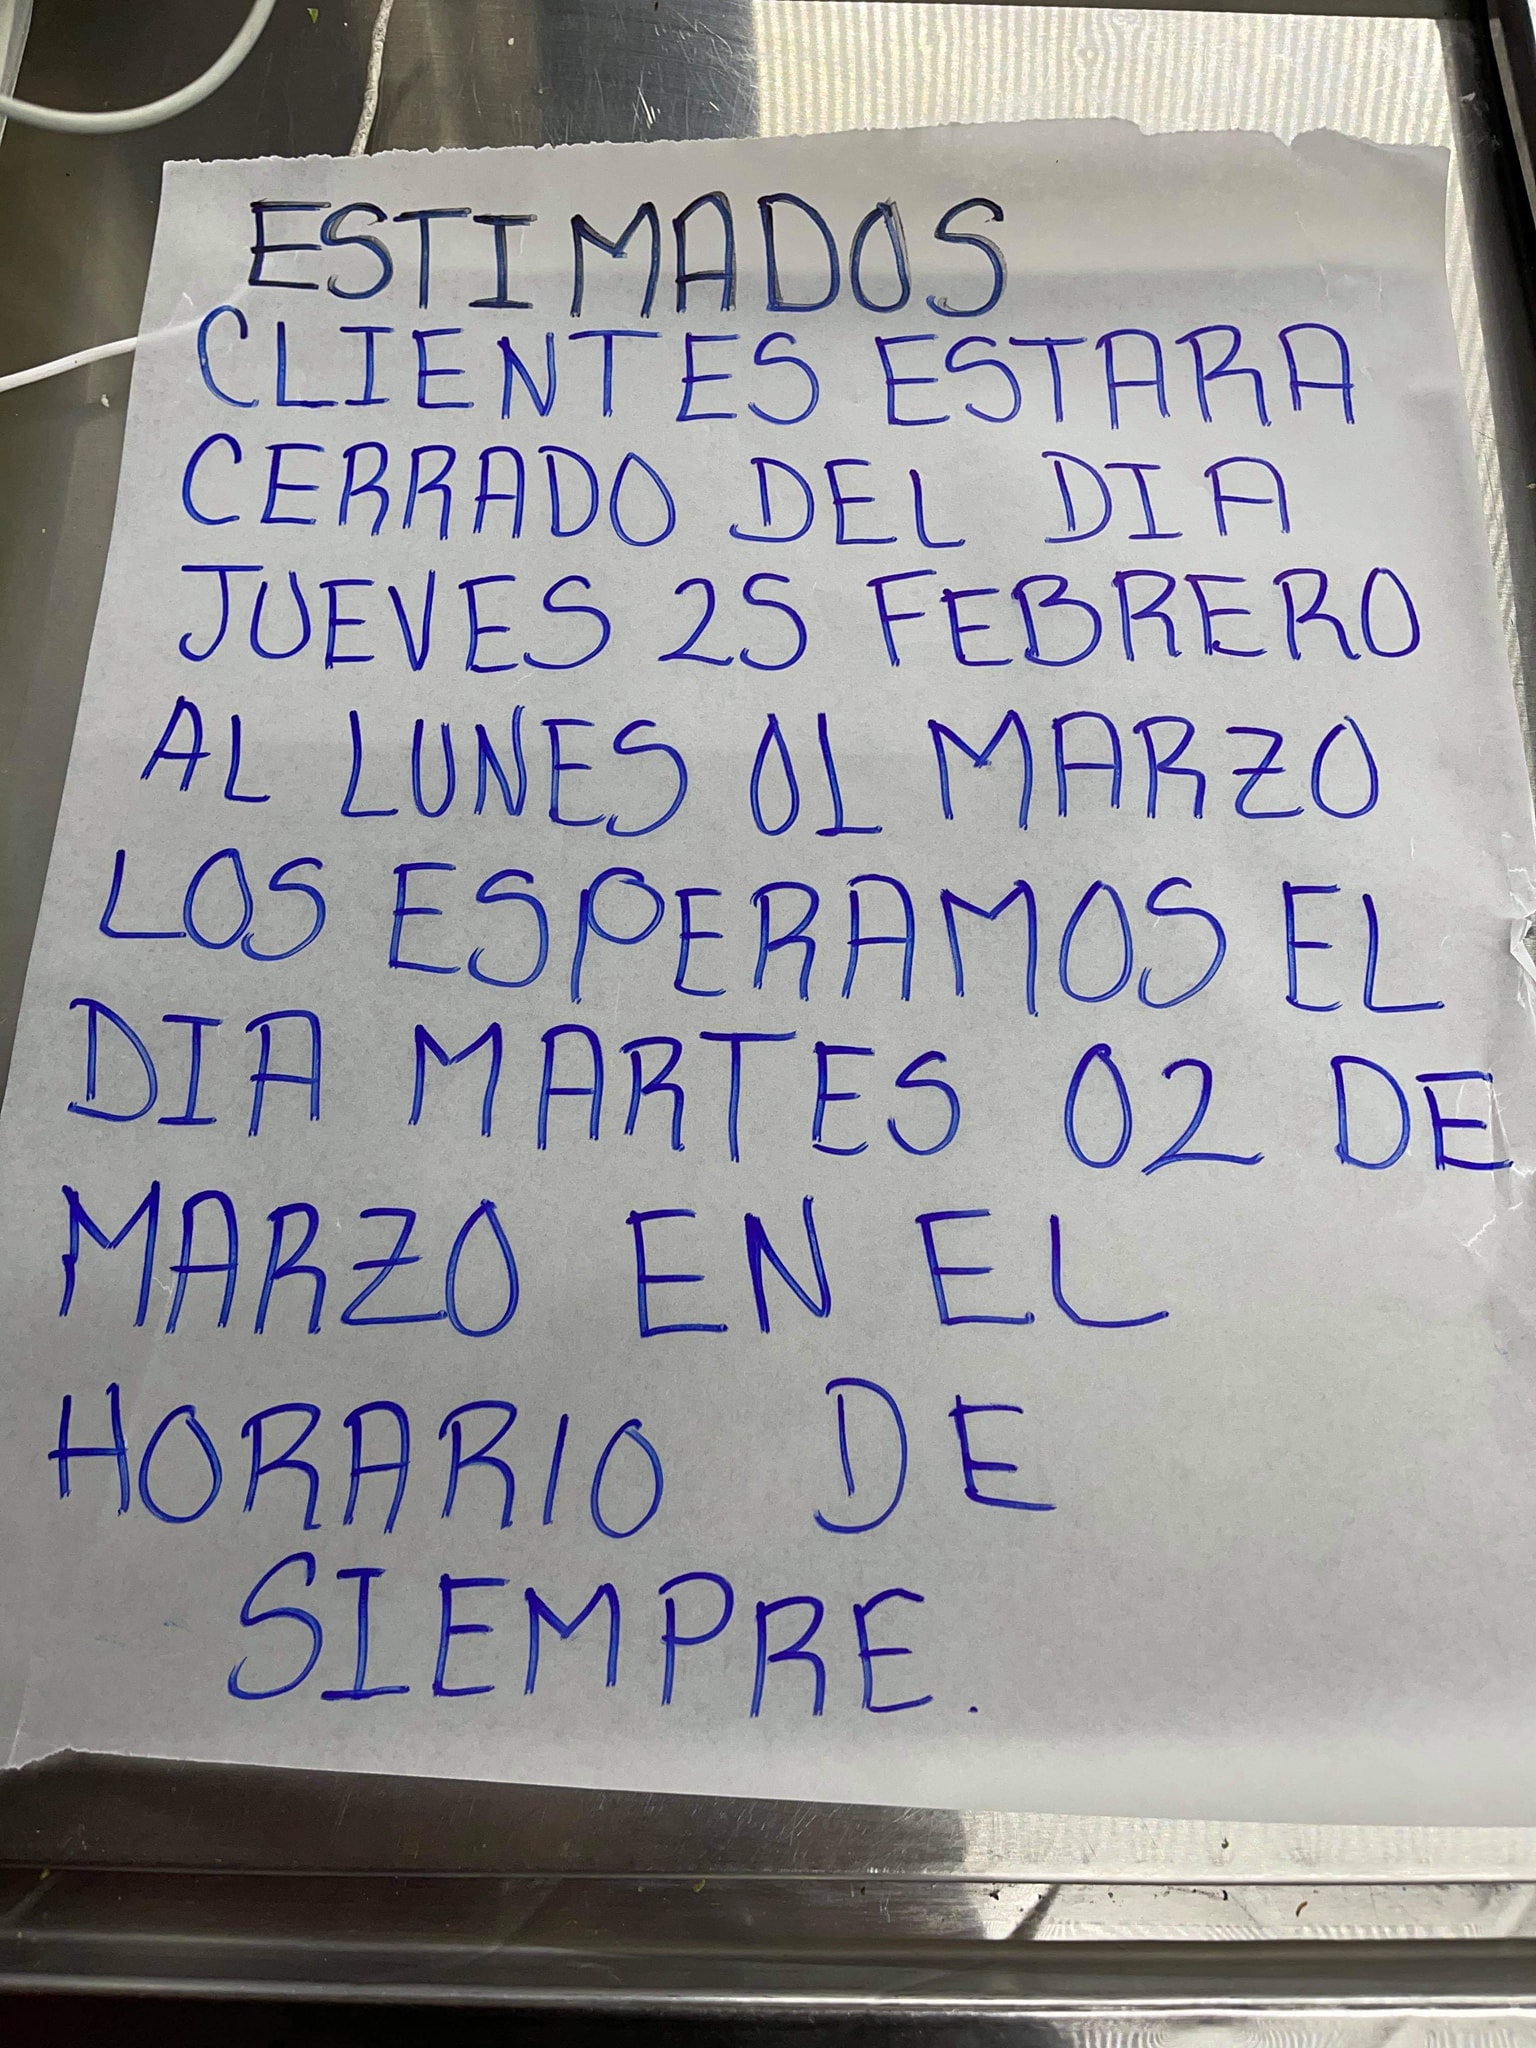 ESTIMADOS
CLIENTES ESTARA
CERRADO DEL DIA
JUEVES 25 FEBRERO
AL LUNES 01 MARZO
LOS ESPERAMOS EL
DIA MARTES 02 DE
MARZO EN EL
HORARIO DE
SIEMPRE.